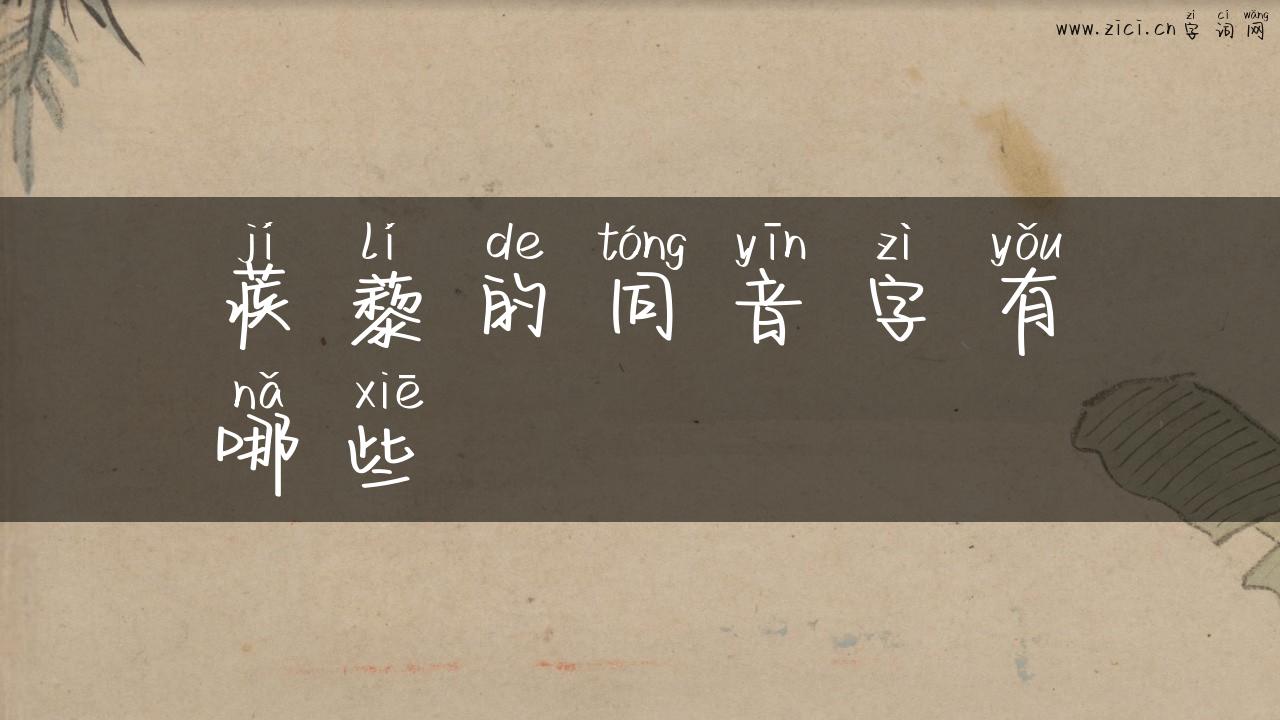 zì cí wǎng
www.zici.cn 字 词 网
jí lí de tóng yīn zì yǒu
蒺 藜 的 同 音 字 有
nǎ xiē
哪 些